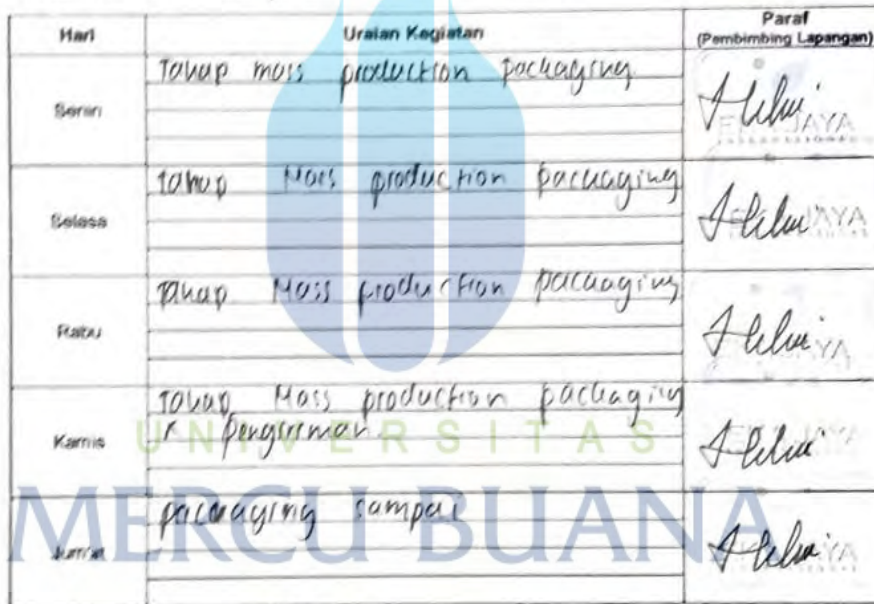 Hari Uraian Kegiatan Paraf
(Pembimbing Lapangan)
Senin Tahap mass production packaging
Selasa Tahap Mass production packaging
Rabu Tahap Mass production packaging
Kamis Tahap Mass production packaging
& pengiriman
Jum'at packaging sampai
UNIVERSITAS
MERCU BUANA